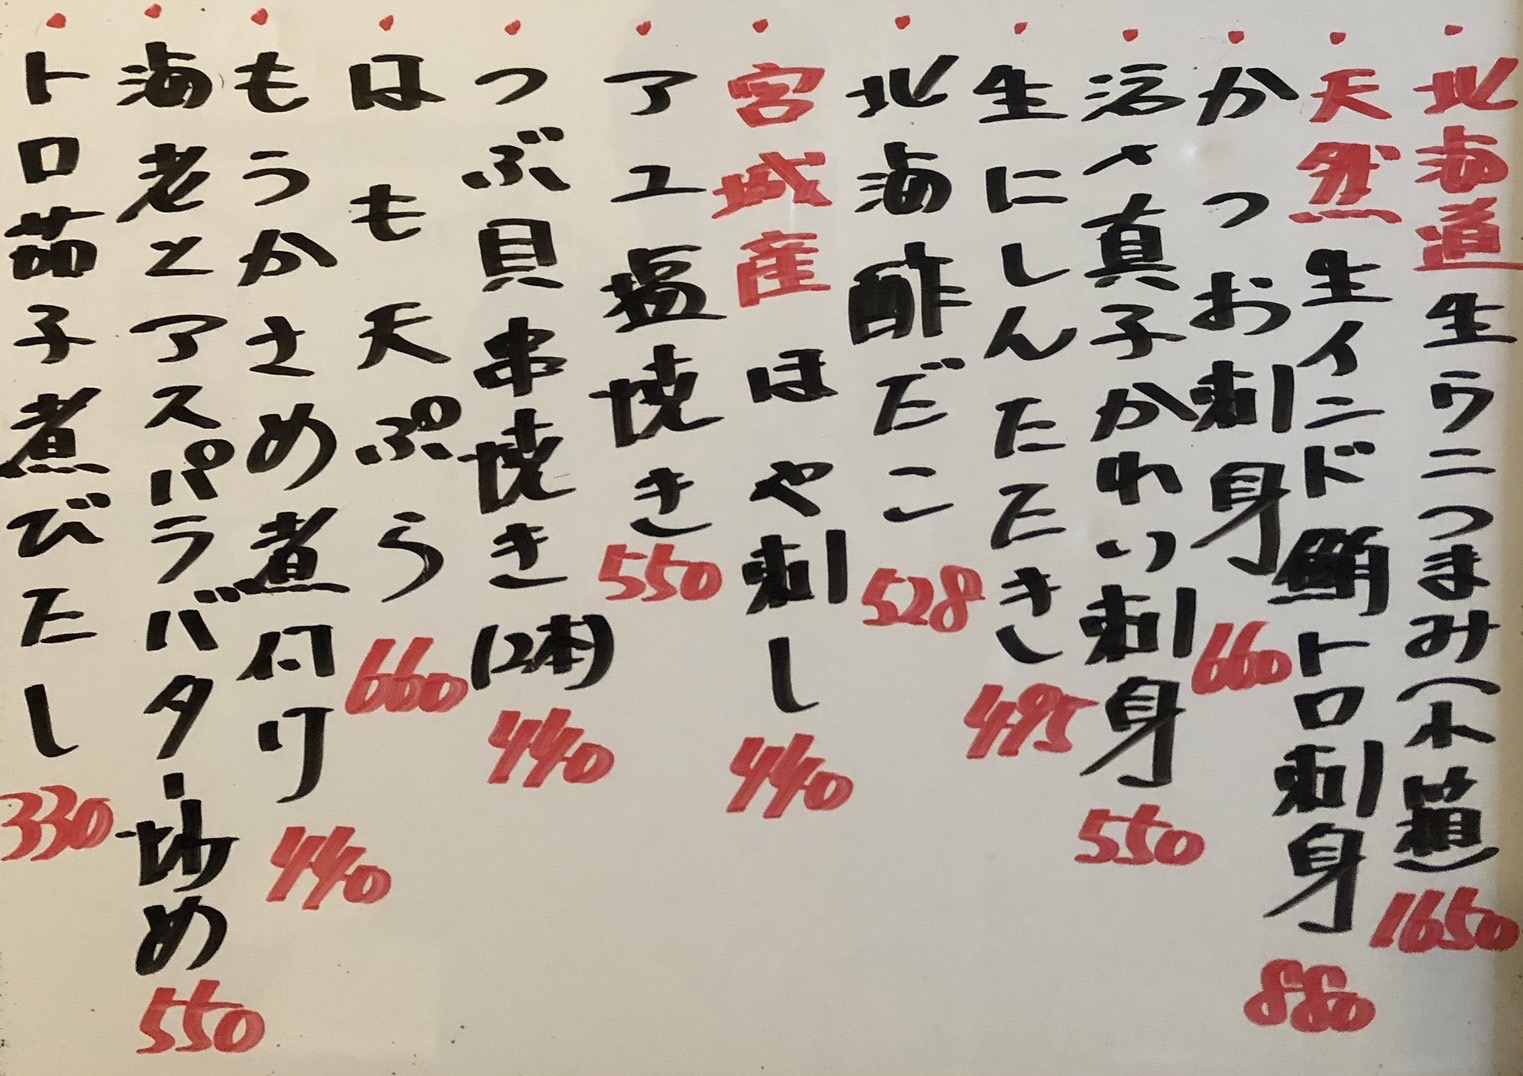 北海道生ウニつまみ(木箱)1650
天然生インド鮪トロ刺身880
かつお刺身660
活〆真子かれい刺身550
生にしんたたき495
北海酢だこ528
宮城産ほや刺し440
アユ塩焼き550
つぶ貝串焼き(2本)440
はも天ぷら660
もうかさめ煮付け440
海老とアスパラバター炒め550
トロ茄子煮びたし330